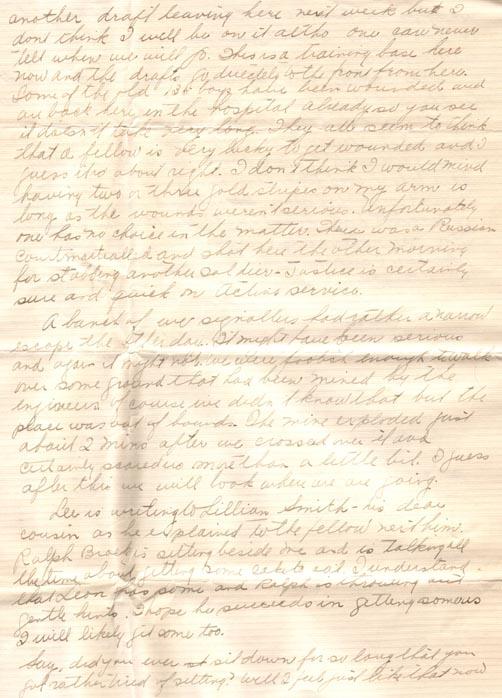 another draft leaving here next week but I
dont think I will be on it altho one can never
tell when we will go. This is a training base here
now and the drafts go directly to the front from here.
Some of the old 136 boys have been wounded and
are back here in the hospital already so you see
it doesn't take very long. They all seem to think
that a fellow is very lucky to get wounded and I
guess its about right. I don't think I would mind
having two or three gold stripes on my arm as
long as the wounds weren't serious. Unfortunately
one has no choice in the matter. There was a Russian
Courtmartialled and shot here the other morning
for stabbing another soldier - Justice is certainly
sure and quick on Active service.
A bunch of we signallers had rather a narrow
escape the other day. It might have been serious
and again it might not. We were foolish enough to walk
over some ground that had been mined by the
engineers of course we didn't know that but the
place was out of bounds. The mine exploded just
about 2 mins after we crossed over it and
certainly scared us more than a little bit. I guess
after this we will look where we are going.
Lee is writing to Lillian Smith - his dear
cousin as he explained to the fellow next him.
Ralph Brock is sitting beside me and is talking all
the time about getting some cake to eat. I understand
that Leon has some and Ralph is throwing out
gentle hints. I hope he succeeds in getting some as
I will likely get some too.
Say, did you ever sit down for so long that you
got rather tired of sitting? well I feel just like that now